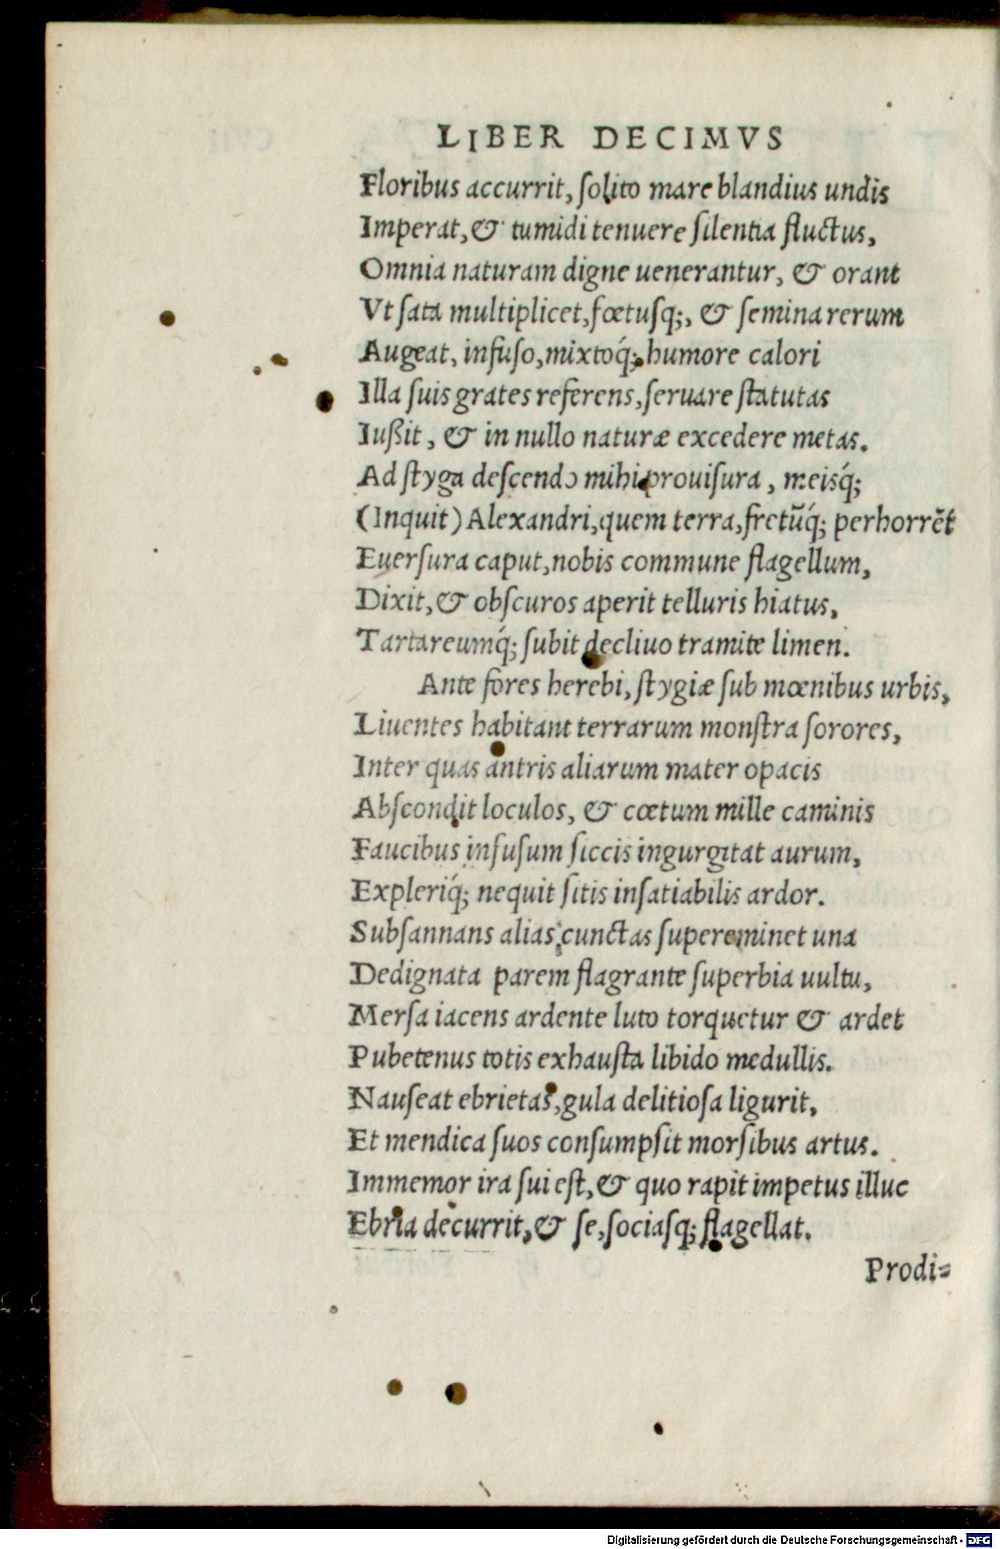 LIBER DECIMVS
Floribus accurrit, ſolito mare blandius undis
Imperat, & tumidi tenuere ſilentia fluctus,
Omnia naturam digne uenerantur, & orant
Vt ſata multiplicet, fœtusq;, & ſemina rerum
Augeat, infuſo, mixtoq́; humore calori
Illa suis grates referens, ſeruare ſtatutas
Iußit, & in nullo naturæ excedere metas.
Ad ſtyga deſcendo mihi prouiſura, meisq́;
(Inquit) Alexandri, quem terra, fretũq́; perhorrẽt
Euerſura caput, nobis commune flagellum,
Dixit, & obſcuros aperit telluris hiatus,
Tartareumq́; ſubit decliuo tramite limen.
Ante fores herebi, ſtygiæ ſub mœnibus urbis,
Liuentes habitant terrarum monſtra ſorores,
Inter quas antris aliarum mater opacis
Abſcondit loculos, & cœtum mille caminis
Faucibus infuſum ſiccis ingurgitat aurum,
Expleriq́; nequit ſitis inſatiabilis ardor.
Subſannans alias cunctas ſupereminet una
Dedignata parem flagrante ſuperbia uultu,
Merſa iacens ardente luto torquetur & ardet
Pubetenus totis exhauſta libido medullis.
Nauſeat ebrietas, gula delitioſa ligurit,
Et mendica ſuos conſumpſit morſibus artus.
Immemor ira ſui eſt, & quo rapit impetus illuc
Ebria decurrit, & ſe, ſociaſq; flagellat.
Prodi=
Digitalisierung gefördert durch die Deutsche Forschungsgemeinschaft - DFG